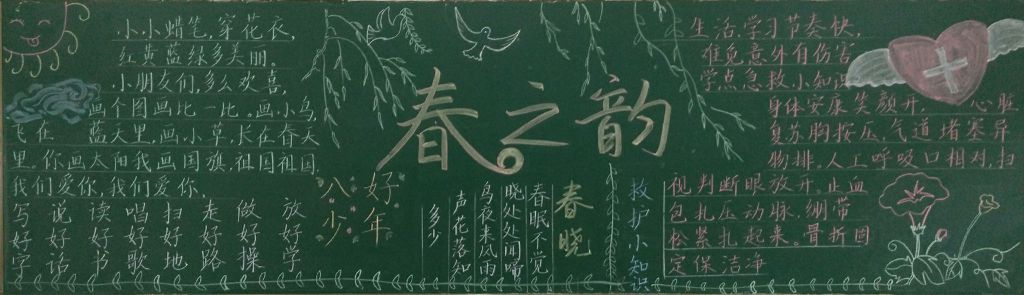 小小蜡笔,穿花衣,
红黄蓝绿多美丽。
小朋友们,多么欢喜,
画个图画比一比。画小鸟,
飞在 蓝天里,画小草,长在春天
里。你画太阳我画国旗,祖国祖国,
我们爱你,我们爱你。
写说读唱扫走做放
好好好好好好好好
字话书歌地路操学
八少
好年
春之韵
春晓
春眠不觉
晓处处闻啼
鸟夜来风雨
声花落知
多少
救护小知识
生活,学习节奏快,
难免意外有伤害
学点急救小知识
身体安康笑颜开。 心脏
复苏胸按压,气道堵塞异
物排。人工呼吸口相对,扫
视判断眼放开。止血
包扎压动脉,绷带
松紧扎起来。骨折固
定保洁净